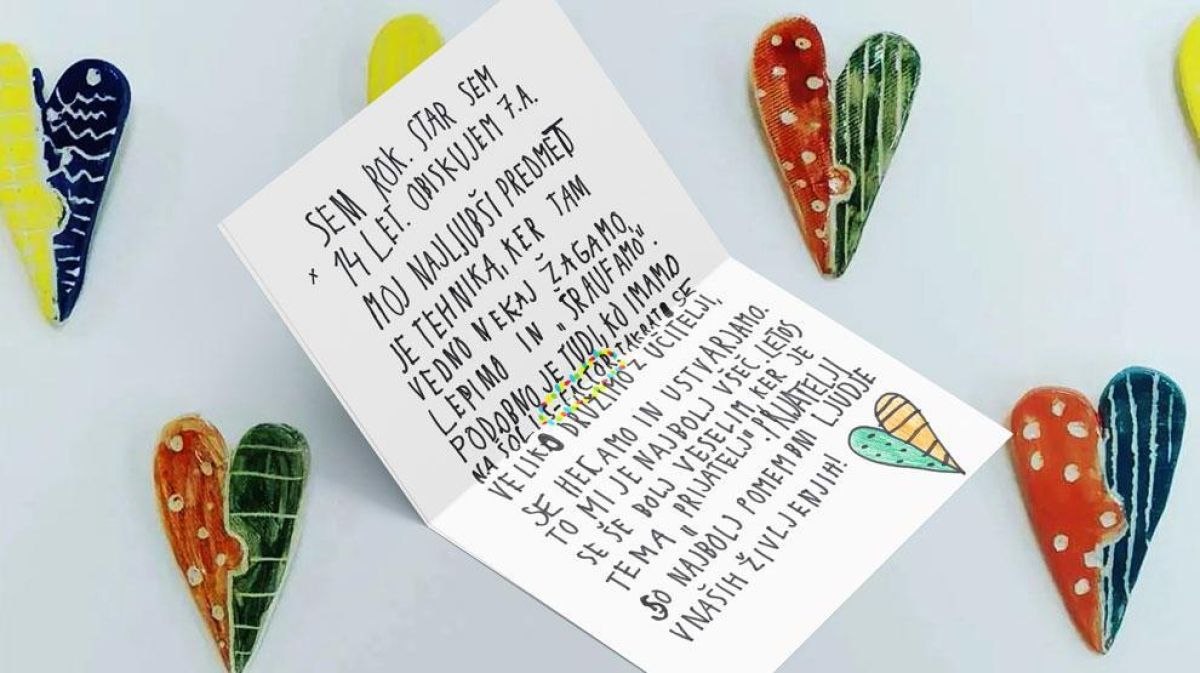 SEM ROK. STAR SEM
14 LET. OBISKUJEM 7.A.
MOJ NAJLJUBŠI PREDMET
JE TEHNIKA, KER TAM
VEDNO NEKAJ ŽAGAMO,
LEPIMO IN "ŠRAUFAMO".
PODOBNO JE TUDI, KO IMAMO
NA ŠOLI TAKRAT SE
VELIKO DRUŽIMO Z UČITELJI,
SE HECAMO IN USTVARJAMO.
TO MI JE NAJBOLJ VŠEČ. LETOS
SE ŠE BOLJ VESELIM KER JE
TEMA "PRIJATELJ". PRIJATELJI
SO NAJBOLJ POMEMBNI LJUDJE
V NAŠIH ŽIVLJENJIH!